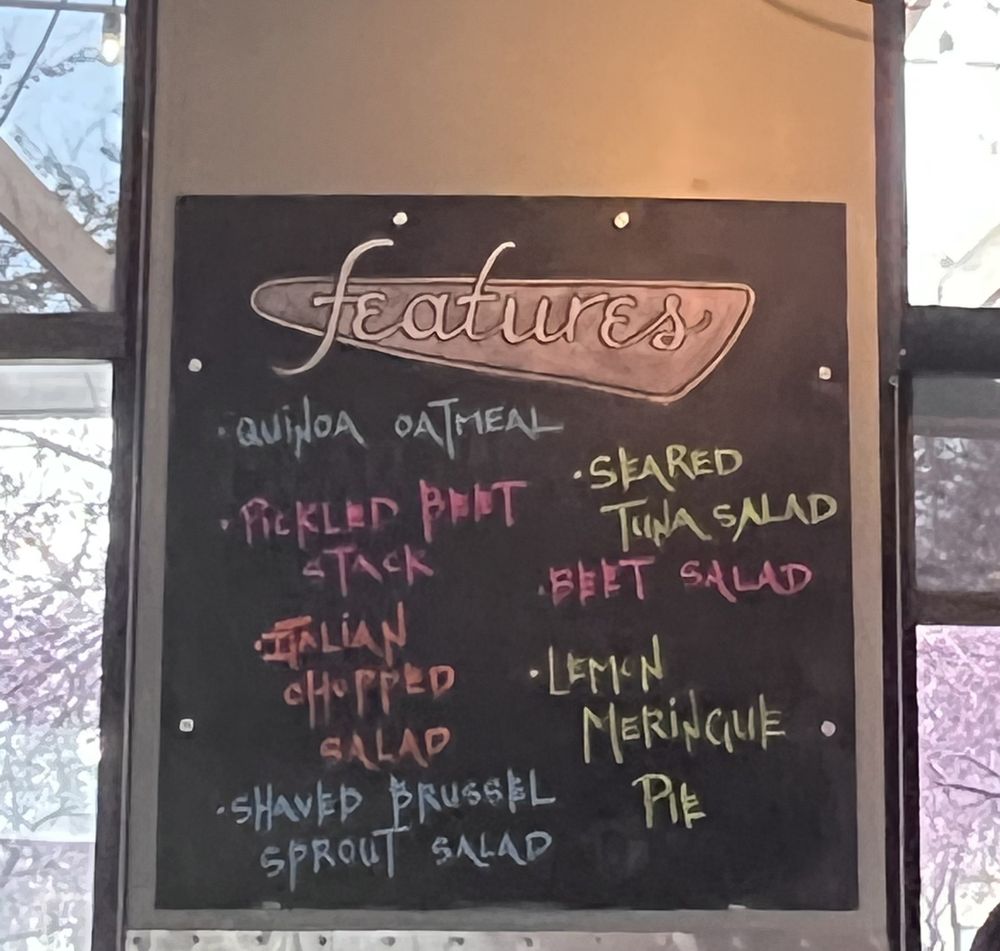 features
· QUINOA OATMEAL
· PICKLED BEET
STACK
· ITALIAN
CHOPPED
SALAD
· SHAVED BRUSSEL
SPROUT SALAD
· SEARED
TUNA SALAD
· BEET SALAD
· LEMON
MERINGUE
PIE